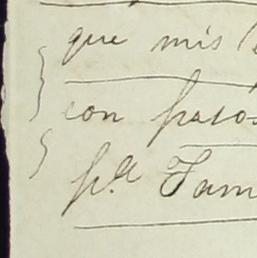 que mis
con paso
p.ª Fam